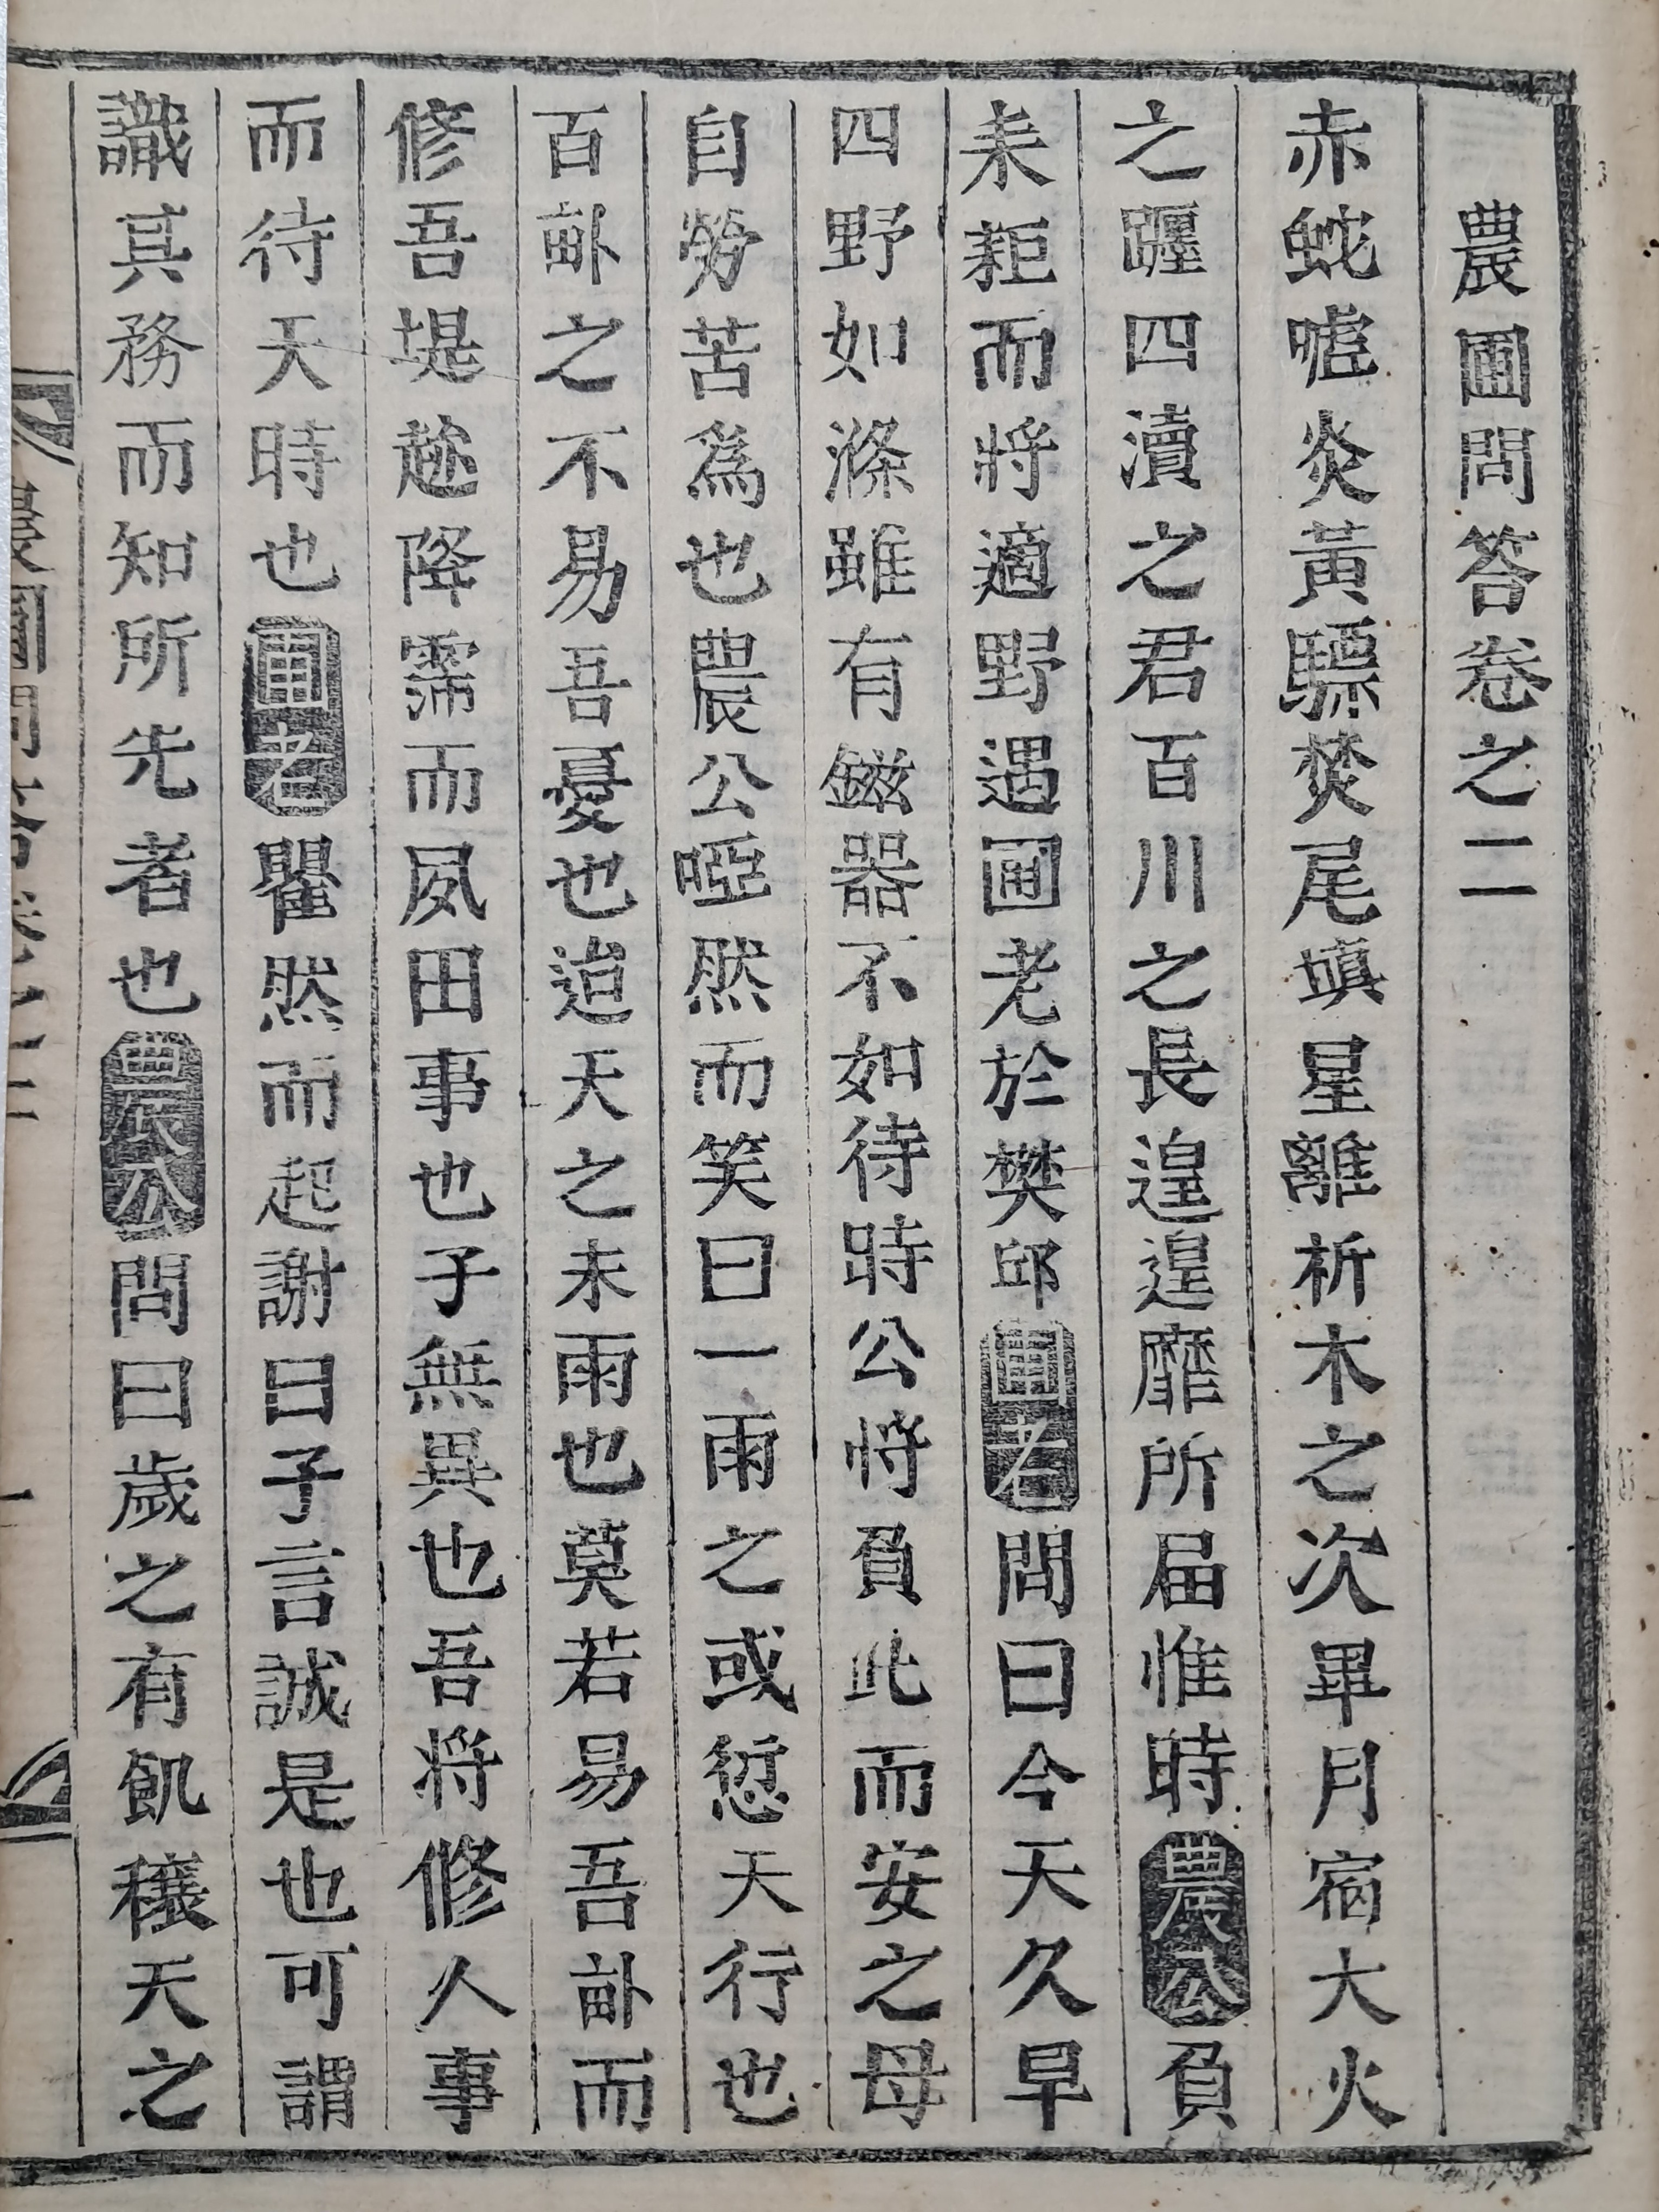 農圃問答卷之二
赤蛇噓炎黃驃焚尾塡星離析木之次畢月宿大火
之躔四瀆之君百川之長遑遑靡所届惟時農公負
耒耟而將適野遇圃老於樊邱圃老問曰今天久旱
四野如滌雖有鎡器不如待時公將負此而安之毋
自勞苦爲也農公啞然而笑曰一雨之或愆天行也
百畝之不易吾憂也迨天之未雨也莫若易吾畝而
修吾堤趂降霈而夙田事也子無異也吾將修人事
而待天時也圃老瞿然而起謝曰子言誠是也可謂
識其務而知所先者也農公問曰歲之有飢穰天之